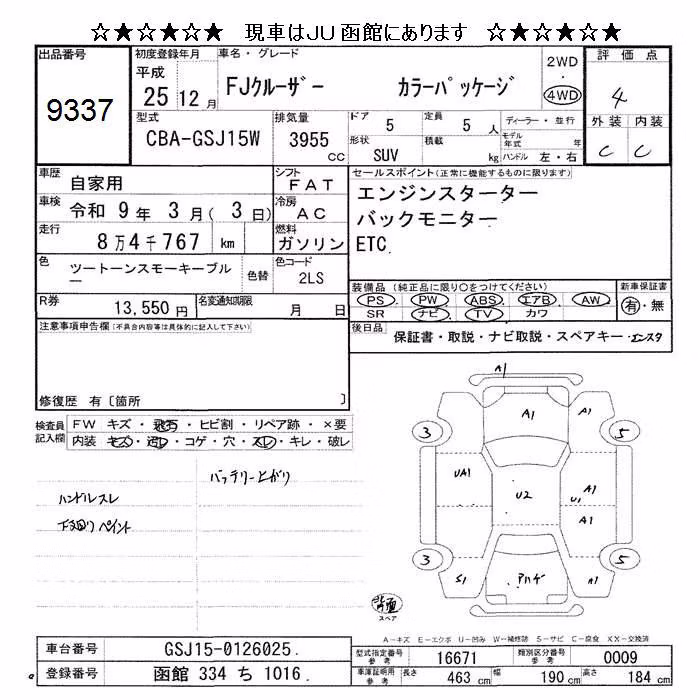 ☆★☆★☆ 現車はJU函館にあります ☆★☆★☆
出品番号 9337
初度登録年月 平成 25年 12月
車名・グレード FJクルーザー カラーパッケージ
2WD ・ 4WD
評価点 4
外装 C 内装 C
型式 CBA-GSJ15W
排気量 3955 CC
ドア 5 定員 5 人
形状 SUV 積載 kg
ディーラー・並行
モデル年式 年
ハンドル 左・右
車歴 自家用
シフト FAT
車検 令和 9年 3月( 3日)
冷房 AC
走行 8万4千767 km
燃料 ガソリン
色 ツートーンスモーキーブルー 色替
色コード 2LS
R券 13,550円
名変通知期限 月 日
セールスポイント(正常に機能するものに限ります)
エンジンスターター
バックモニター
ETC
装備品 (純正品に限り○をつけてください)
PS PW ABS エアB AW
SR ナビ TV カワ
新車保証書 有・無
後日品 保証書・取説・ナビ取説・スペアキー・エンスタ
注意事項申告欄(不具合内容等は具体的に記入して下さい)
修復歴 有〔箇所 〕
検査員記入欄
FW キズ・飛石・ヒビ割・リペア跡・×要
内装 キズ・汚レ・コゲ・穴・スレ・キレ・破レ
バッテリー上がり
ハンドルスレ
下回りペイント
A1
A1
A1
3
5
UA1
U2
A1
U1
A1
3
5
S1
Aハゲ
A1
背面
スペア
A-キズ E-エクボ U-凹み W-補修跡 S-サビ C-腐食 XX-交換済
車台番号 GSJ15-0126025
登録番号 函館 334 ち 1016
型式指定番号 参考 16671
類別区分番号 参考 0009
車庫証明用 参考 長さ 463 cm 幅 190 cm 高さ 184 cm